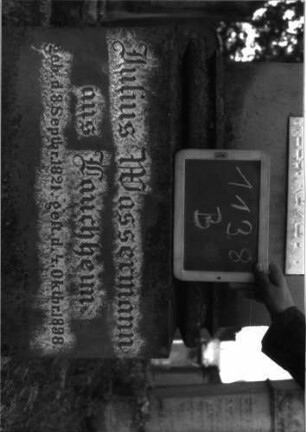 Julius Wassermann
aus Laucheim
geb. d. 8. Septbr. 1821, gest. d. 4. Oktbr. 1898.
1138
B